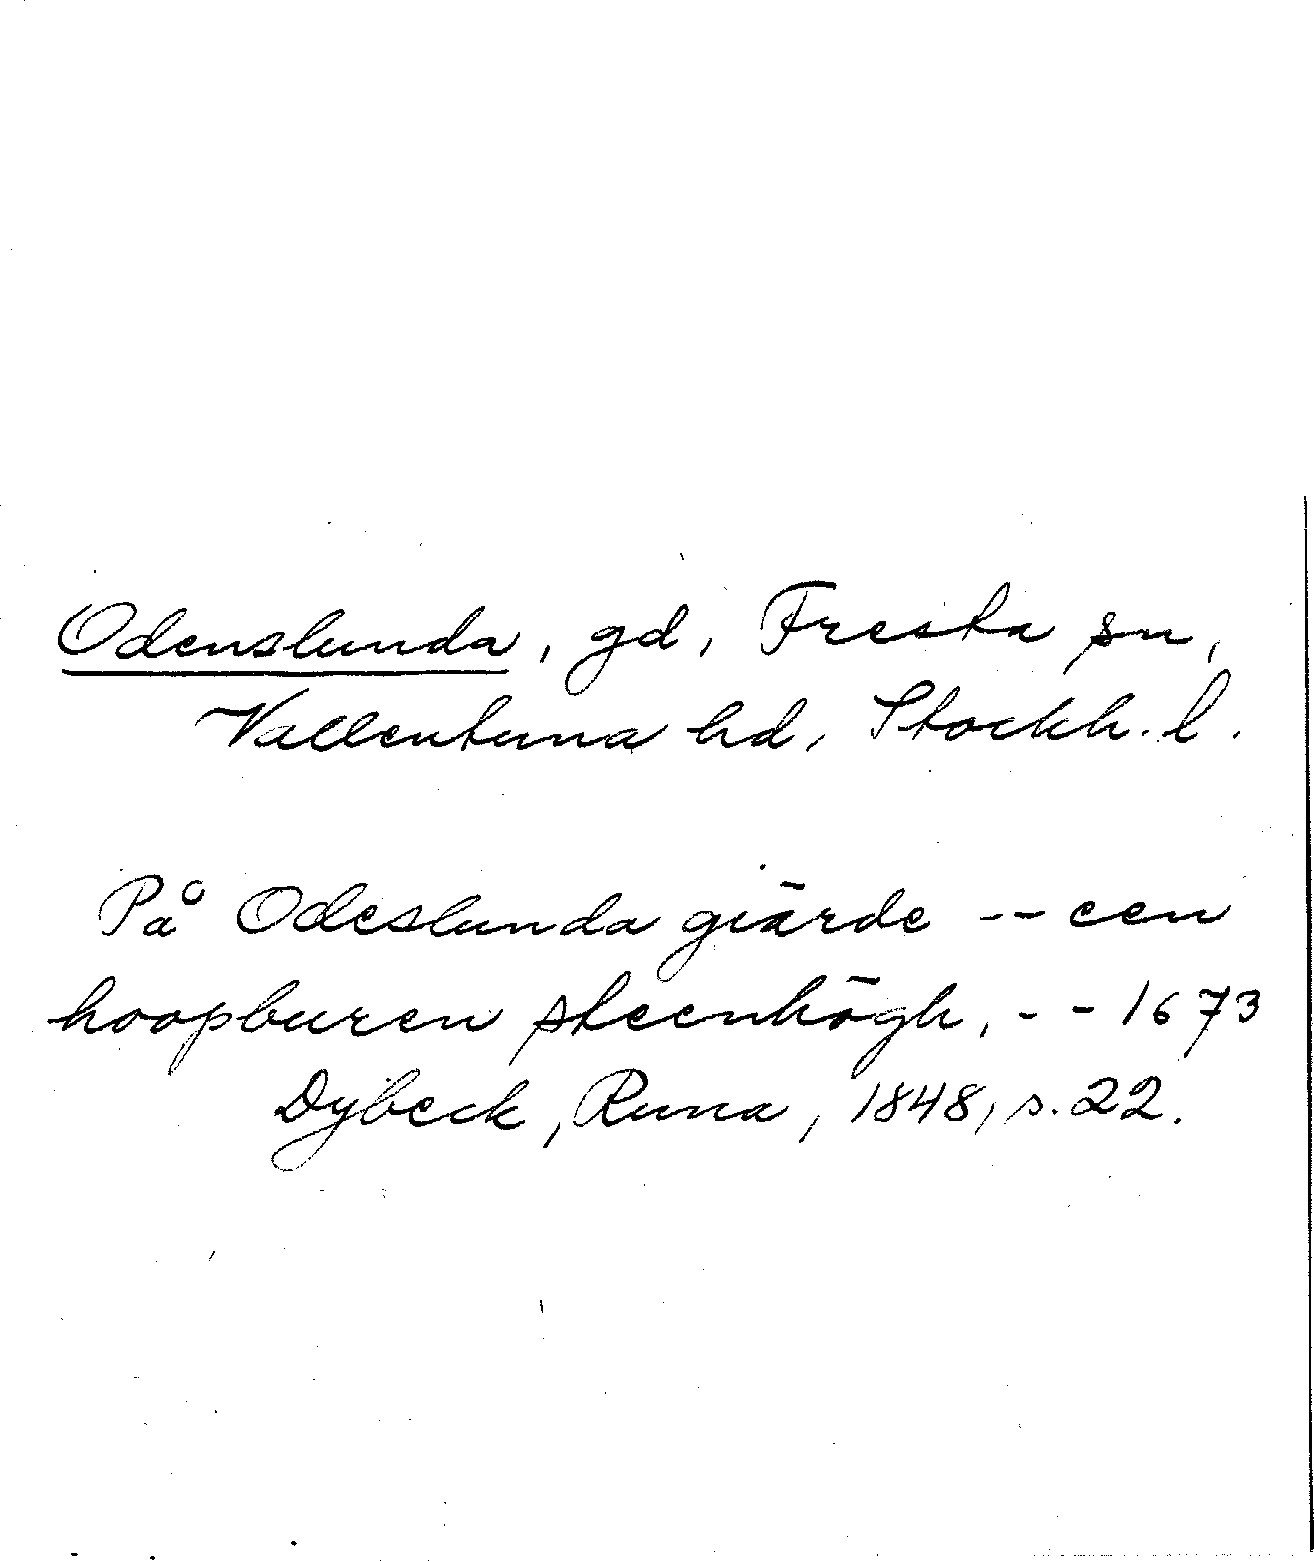 Odenslunda, gd, Fresta sn,
Vallentuna hd, Stockh. l.
På Odeslunda giärde -- een
hoopburen steenhögh, -- 1673
Dybeck, Runa, 1848, s. 22.